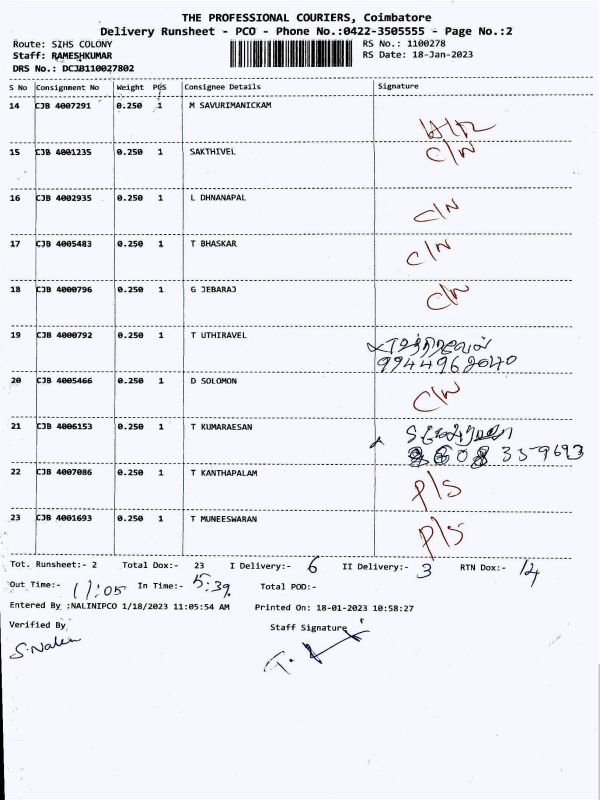 THE PROFESSIONAL COURIERS, Coimbatore
Delivery Runsheet - PCO - Phone No.:0422-3505555 - Page No.:2
Route: SIHS COLONY RS No.: 1100278
Staff: RAMESHKUMAR RS Date: 18-Jan-2023
DRS No.: DCJB110027802
S No Consignment No Weight PCS Consignee Details Signature
14 CJB 4007291 0.250 1 M SAVURIMANICKAM
15 CJB 4001235 0.250 1 SAKTHIVEL C/N
16 CJB 4002935 0.250 1 L DHNANAPAL C/N
17 CJB 4005483 0.250 1 T BHASKAR C/N
18 CJB 4000796 0.250 1 G JEBARAJ C/N
19 CJB 4000792 0.250 1 T UTHIRAVEL
9944962040
20 CJB 4005466 0.250 1 D SOLOMON C/N
21 CJB 4006153 0.250 1 T KUMARAESAN
22 CJB 4007086 0.250 1 T KANTHAPALAM P/S
23 CJB 4001693 0.250 1 T MUNEESWARAN P/S
Tot. Runsheet:- 2 Total Dox:- 23 I Delivery:- 6 II Delivery:- 3 RTN Dox:- 14
Out Time:- 11:05 In Time:- 5:39 Total POD:-
Entered By :NALINIPCO 1/18/2023 11:05:54 AM Printed On: 18-01-2023 10:58:27
Verified By Staff Signature
S.Nalini